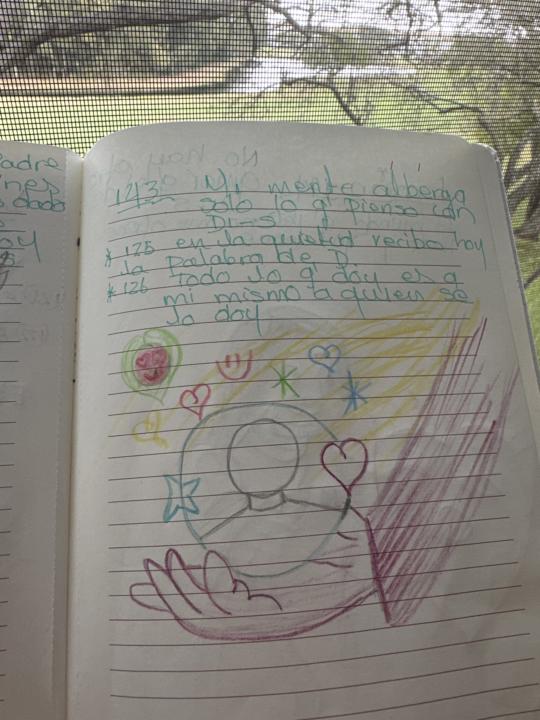 adre
nes
dado
oy
143 Mi mente alberga
solo lo q' pienso con
Di-s!
* 125 en la quietud recibo hoy
la Palabra de D.
* 126 Todo lo q' doy es a
mi mismo a quien se
lo doy